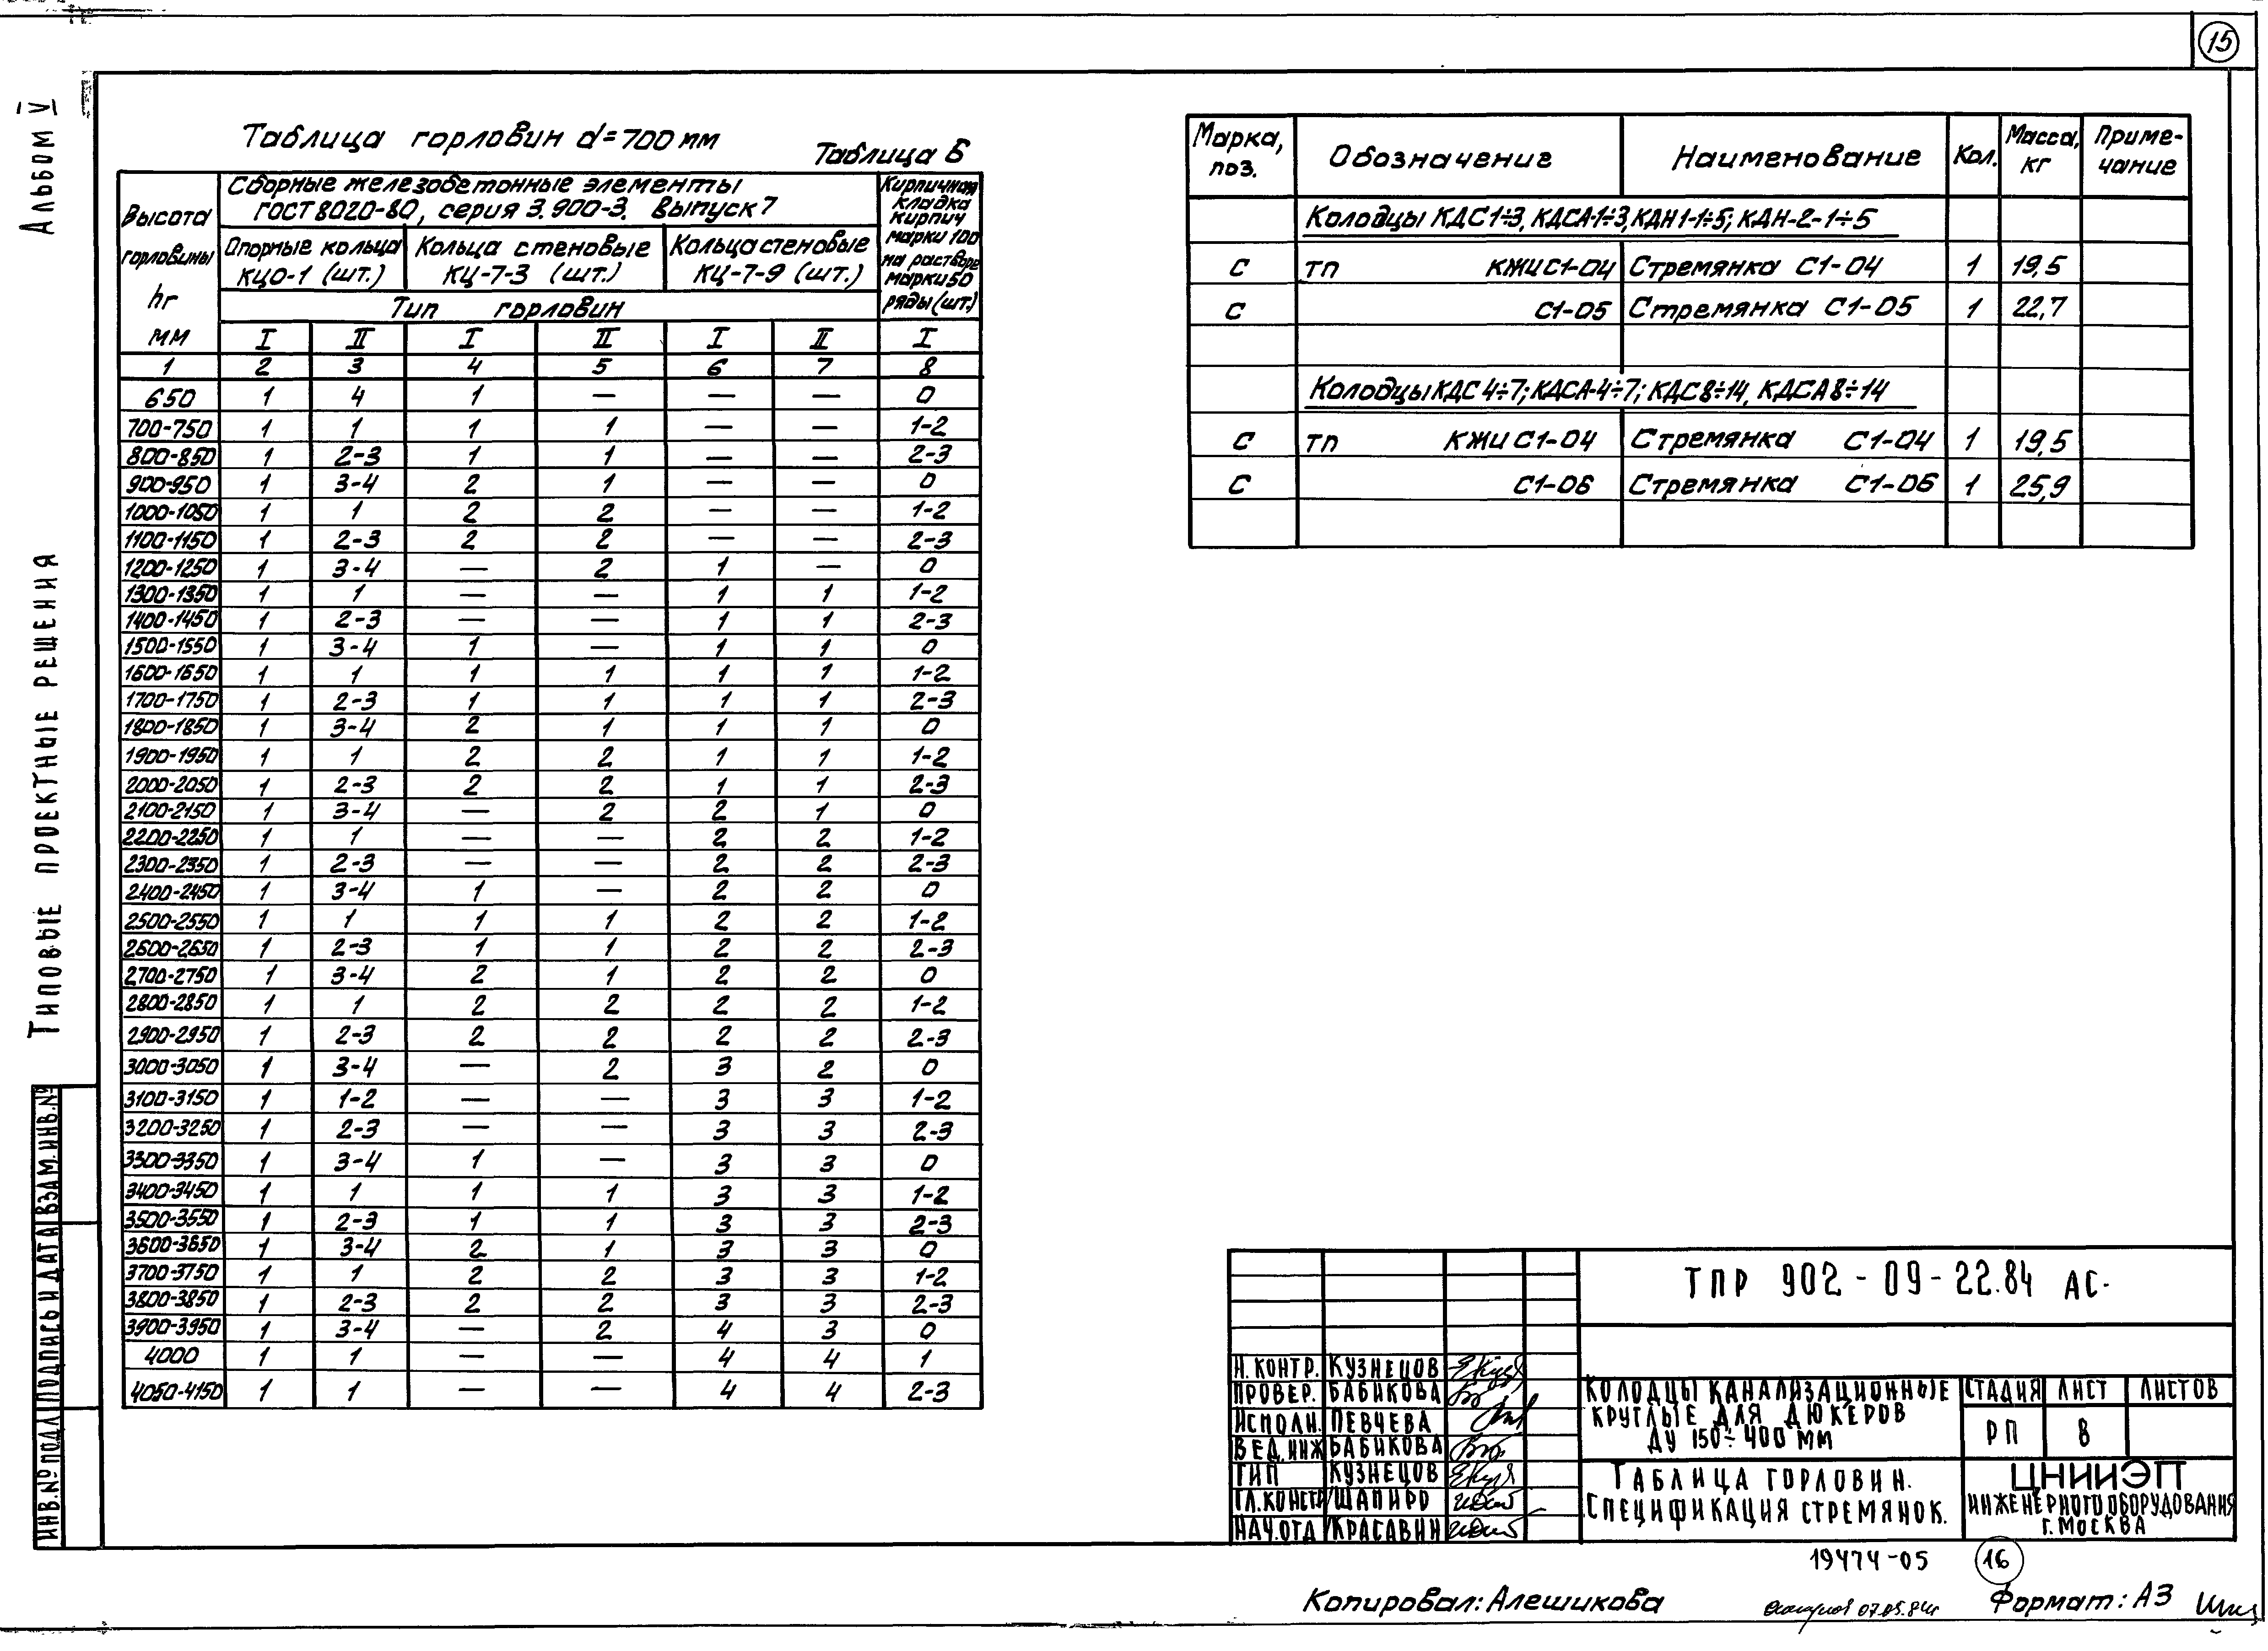 15
Альбом V
Типовые проектные решения
Таблица горловин d=700мм
Таблица 6
Высота горловины hг мм
Сборные железобетонные элементы
ГОСТ 8020-80, серия 3.900-3. Выпуск 7
Кирпичная кладка кирпич марки 100 на растворе марки 50 ряды (шт.)
Опорные кольца КЦО-1 (шт.)
Кольца стеновые КЦ-7-3 (шт.)
Кольца стеновые КЦ-7-9 (шт.)
Тип горловин
I II I II I II I
1 2 3 4 5 6 7 8
650 1 4 1 — — — 0
700-750 1 1 1 1 — — 1-2
800-850 1 2-3 1 1 — — 2-3
900-950 1 3-4 2 1 — — 0
1000-1050 1 1 2 2 — — 1-2
1100-1150 1 2-3 2 2 — — 2-3
1200-1250 1 3-4 — 2 1 — 0
1300-1350 1 1 — — 1 1 1-2
1400-1450 1 2-3 — — 1 1 2-3
1500-1550 1 3-4 1 — 1 1 0
1600-1650 1 1 1 1 1 1 1-2
1700-1750 1 2-3 1 1 1 1 2-3
1800-1850 1 3-4 2 1 1 1 0
1900-1950 1 1 2 2 1 1 1-2
2000-2050 1 2-3 2 2 1 1 2-3
2100-2150 1 3-4 — 2 2 1 0
2200-2250 1 1 — — 2 2 1-2
2300-2350 1 2-3 — — 2 2 2-3
2400-2450 1 3-4 1 — 2 2 0
2500-2550 1 1 1 1 2 2 1-2
2600-2650 1 2-3 1 1 2 2 2-3
2700-2750 1 3-4 2 1 2 2 0
2800-2850 1 1 2 2 2 2 1-2
2900-2950 1 2-3 2 2 2 2 2-3
3000-3050 1 3-4 — 2 3 2 0
3100-3150 1 1-2 — — 3 3 1-2
3200-3250 1 2-3 — — 3 3 2-3
3300-3350 1 3-4 1 — 3 3 0
3400-3450 1 1 1 1 3 3 1-2
3500-3550 1 2-3 1 1 3 3 2-3
3600-3650 1 3-4 2 1 3 3 0
3700-3750 1 1 2 2 3 3 1-2
3800-3850 1 2-3 2 2 3 3 2-3
3900-3950 1 3-4 — 2 4 3 0
4000 1 1 — — 4 4 1
4050-4150 1 1 — — 4 4 2-3
Марка, поз. Обозначение Наименование Кол. Масса, кг Примечание
Колодцы КДС1÷3, КДСА-1÷3, КДН1-1÷5; КДН-2-1÷5
С ТП КЖИ С1-04 Стремянка С1-04 1 19,5
С С1-05 Стремянка С1-05 1 22,7
Колодцы КДС 4÷7; КДСА-4÷7; КДС8÷14, КДСА8÷14
С ТП КЖИ С1-04 Стремянка С1-04 1 19,5
С С1-06 Стремянка С1-06 1 25,9
ТПР 902-09-22.84 АС.
Н.контр. Кузнецов
Провер. Бабикова
Исполн. Певчева
Вед.инж Бабикова
ГИП Кузнецов
Гл.констр Шапиро
Нач.отд Красавин
Колодцы канализационные
круглые для дюкеров
Ду 150÷400 мм
Стадия Лист Листов
РП 8
Таблица горловин.
Спецификация стремянок.
ЦНИИЭП
инженерного оборудования
г. Москва
Инв.№ подл Подпись и дата Взам.инв.№
19474-05 16
Копировал: Алешикова
07.05.84г
Формат: А3